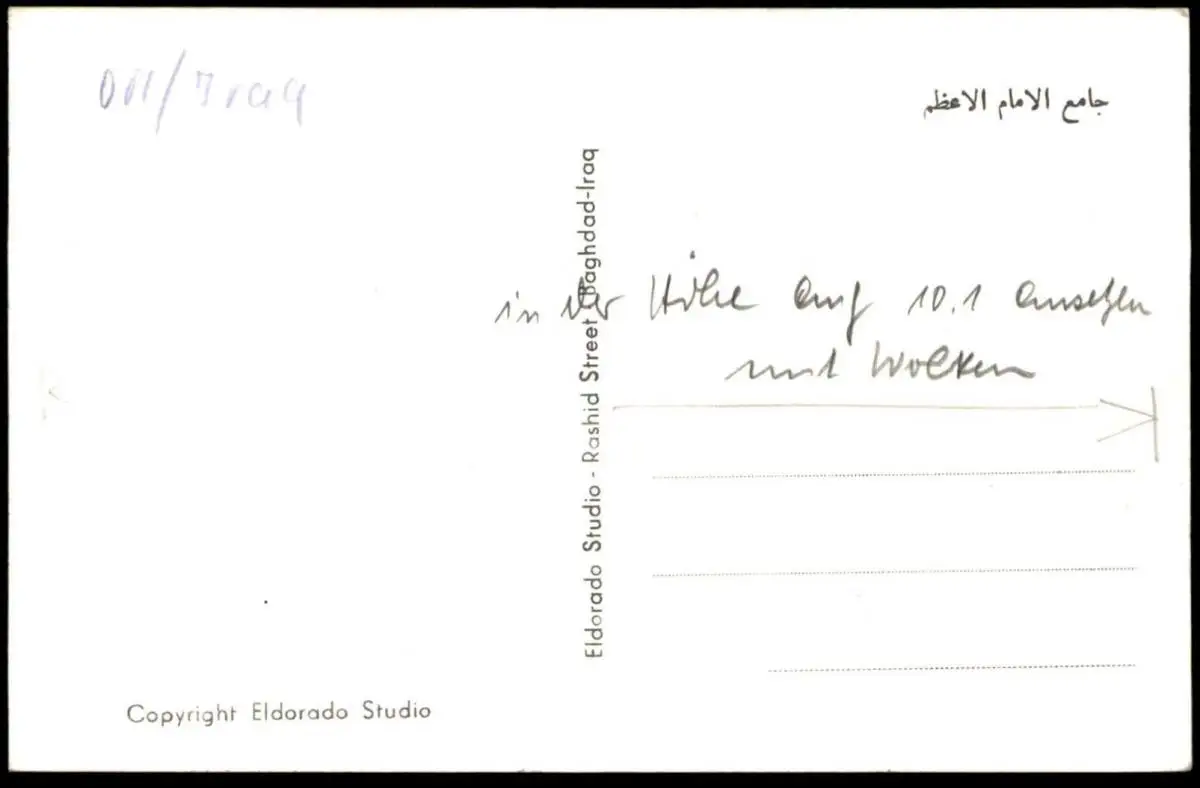 /Iraq
جامع الامام الاعظم
in der Höhe auf 10.1 ansetzen
mit Wolken
Eldorado Studio - Rashid Street Baghdad-Iraq
Copyright Eldorado Studio